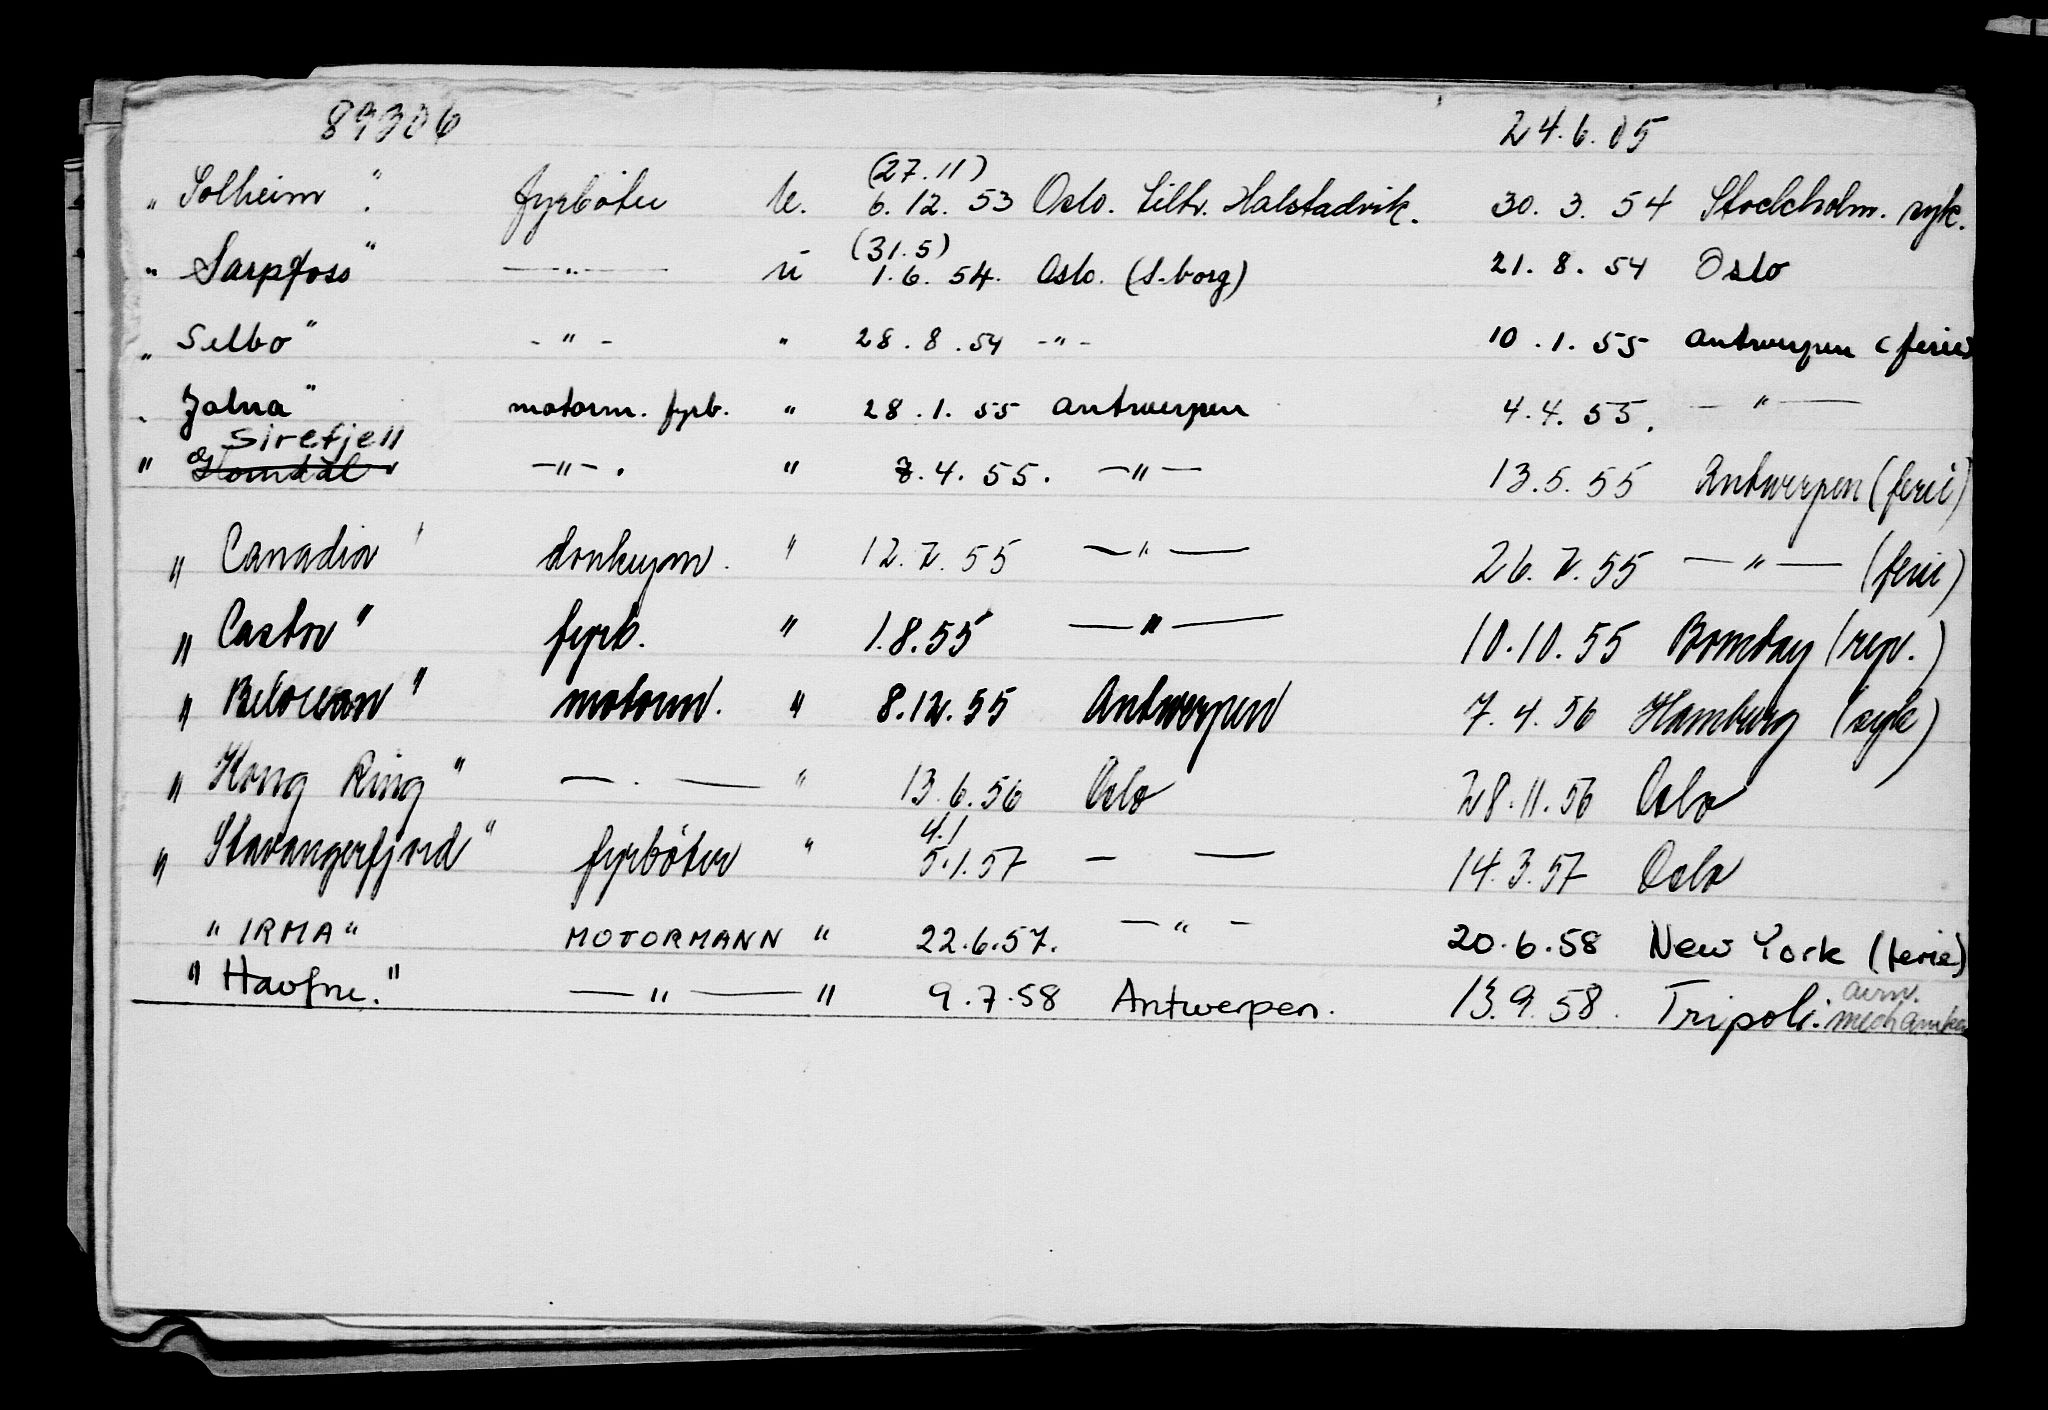 89306 24.6.05
„ Solheim " fyrbøter U. (27.11) 6.12.53 Oslo. tiltr. Halstadvik. 30.3.54 Stockholm. syk.
„ Sarpfoss " —"— u (31.5) 1.6.54. Oslo. (S.borg) 21.8.54 Oslo
„ Selbo " -"- " 28.8.54 -"- 10.1.55 Antwerpen (ferie)
„ Jalna " motorm. fyrb. " 28.1.55 Antwerpen 4.4.55. —"—
Sirefjell
" Glomdal —"—. " 7.4.55. —"— 13.5.55 Antwerpen (ferie)
„ Canadia ' donkeym. " 12.7.55 —"— 26.7.55 —"— (ferie)
„ Castor " fyrb. " 1.8.55 —"— 10.10.55 Bombay (rep.)
„ Belocean " motorm. " 8.12.55 Antwerpen 7.4.56 Hamburg (syk)
„ Kong Ring " —.— " 13.6.56 Oslo 28.11.56 Oslo
„ Stavangerfjord " fyrbøter " 4.1 5.1.57 — — 14.3.57 Oslo
" IRMA " MOTORMANN " 22.6.57. —"— 20.6.58 New York (ferie)
" Havfru. " —"— " 9.7.58 Antwerpen. 13.9.58. Tripoli.